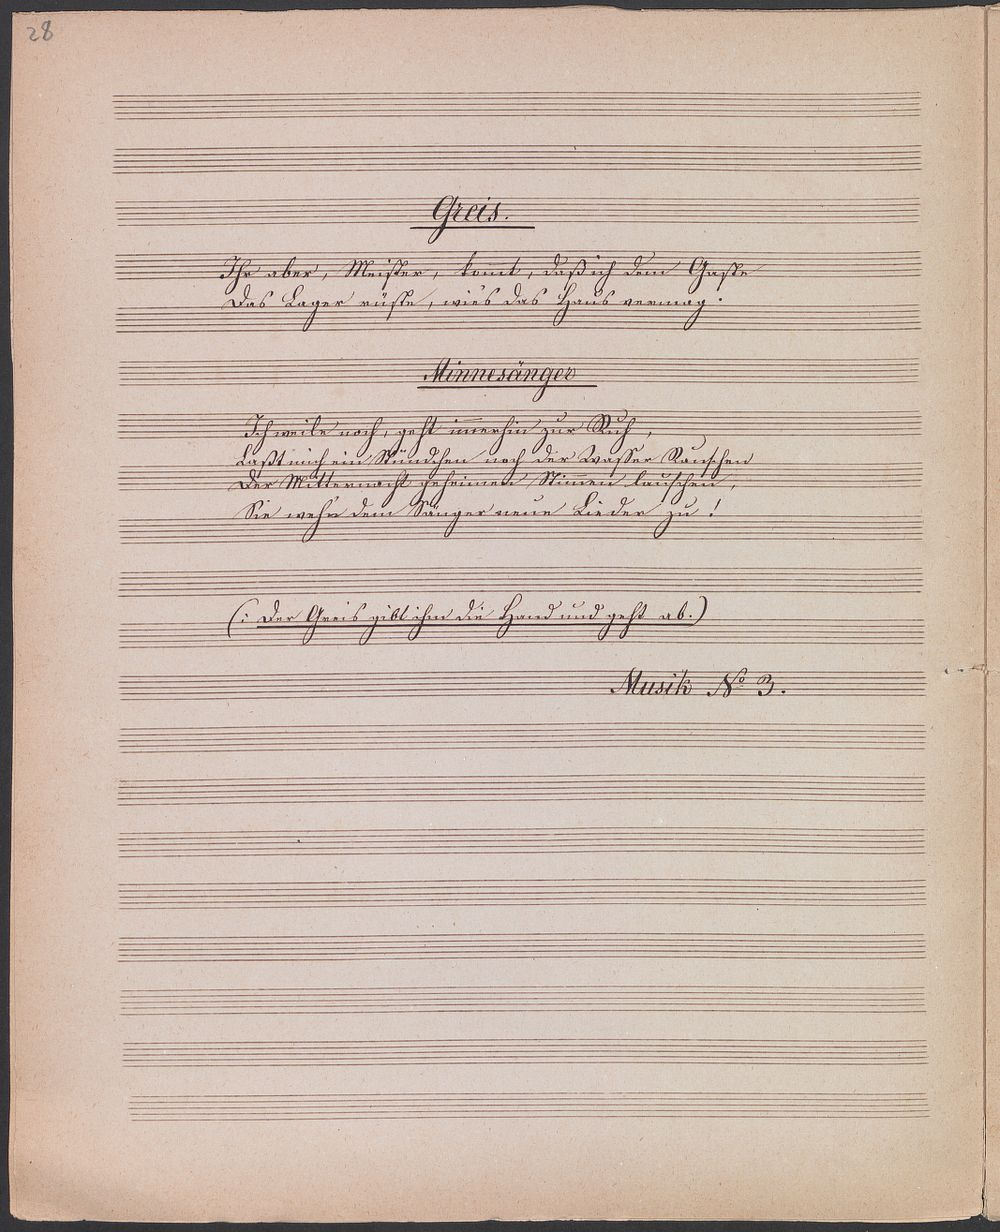 28
Greis.
Ihr aber, Meister, kom̅t, daß ich dem Gaste
Das Lager rüste, wie's das Haus vermag.
Minnesänger
Ich weile noch, geht immerhin zur Ruh,
Laßt mich ein Stündchen noch der Wasser Rauschen
Der Mitternacht geheimen Stim̅en lauschen,
Sie wehn dem Sänger neue Lieder zu!
(: Der Greis gibt ihm die Hand und geht ab.)
Musik No 3.